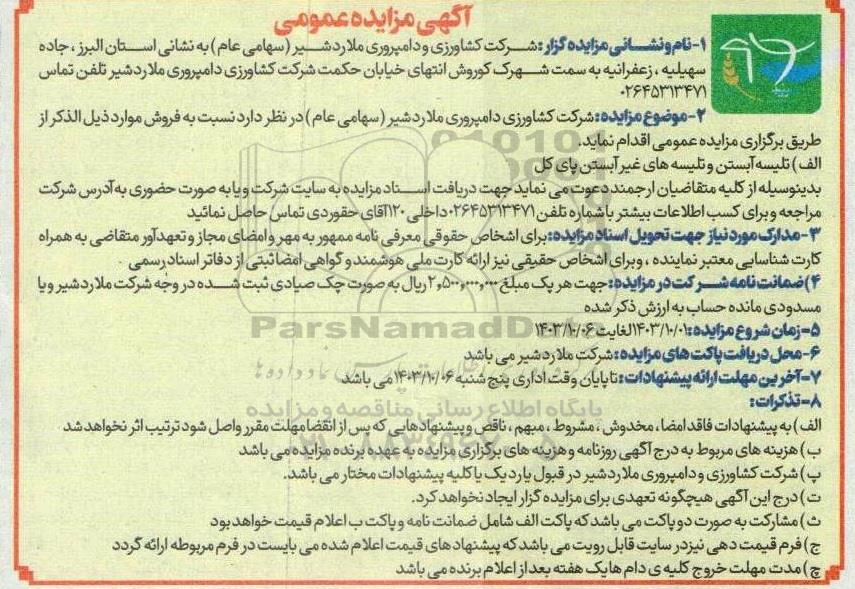 آگهی مزایده عمومی
۱- نام و نشانی مزایده گزار : شرکت کشاورزی و دامپروری ملارد شیر (سهامی عام) به نشانی استان البرز ، جاده
سهیلیه ، زعفرانیه به سمت شهرک کوروش انتهای خیابان حکمت شرکت کشاورزی دامپروری ملارد شیر تلفن تماس
۰۲۶۴۵۳۱۳۴۷۱
۲- موضوع مزایده : شرکت کشاورزی دامپروری ملارد شیر (سهامی عام) در نظر دارد نسبت به فروش موارد ذیل الذکر از
طریق برگزاری مزایده عمومی اقدام نماید.
الف) تلیسه آبستن و تلیسه های غیر آبستن پای کل
بدینوسیله از کلیه متقاضیان ارجمند دعوت می نماید جهت دریافت اسناد مزایده به سایت شرکت و یا به صورت حضوری به آدرس شرکت
مراجعه و برای کسب اطلاعات بیشتر با شماره تلفن ۰۲۶۴۵۳۱۳۴۷۱ داخلی ۱۲۰ آقای حقوردی تماس حاصل نمائید
۳- مدارک مورد نیاز جهت تحویل اسناد مزایده: برای اشخاص حقوقی معرفی نامه ممهور به مهر و امضای مجاز و تعهدآور متقاضی به همراه
کارت شناسایی معتبر نماینده ، و برای اشخاص حقیقی نیز ارائه کارت ملی هوشمند و گواهی امضا ثبتی از دفاتر اسناد رسمی
۴) ضمانت نامه شرکت در مزایده : جهت هر پک مبلغ ۲,۵۰۰,۰۰۰,۰۰۰ ریال به صورت چک صیادی ثبت شده در وجه شرکت ملارد شیر و یا
مسدودی مانده حساب به ارزش ذکر شده
۵- زمان شروع مزایده : ۱۴۰۳/۱۰/۰۱ لغایت ۱۴۰۳/۱۰/۰۶
۶- محل دریافت پاکت های مزایده : شرکت ملارد شیر می باشد
۷- آخرین مهلت ارائه پیشنهادات : تا پایان وقت اداری پنج شنبه ۱۴۰۳/۱۰/۰۶ می باشد
۸- تذکرات :
الف) به پیشنهادات فاقد امضا ، مخدوش ، مشروط ، مبهم ، ناقص و پیشنهادهایی که پس از انقضا مهلت مقرر واصل شود ترتیب اثر نخواهد شد
ب) هزینه های مربوط به درج آگهی روزنامه و هزینه های برگزاری مزایده به عهده برنده مزایده می باشد
پ) شرکت کشاورزی و دامپروری ملارد شیر در قبول یا رد یک یا کلیه پیشنهادات مختار می باشد.
ت) درج این آگهی هیچگونه تعهدی برای مزایده گزار ایجاد نخواهد کرد.
ث) مشارکت به صورت دو پاکت می باشد که پاکت الف شامل ضمانت نامه و پاکت ب اعلام قیمت خواهد بود
ج) فرم قیمت دهی نیز در سایت قابل رویت می باشد که پیشنهاد های قیمت اعلام شده می بایست در فرم مربوطه ارائه گردد
چ) مدت مهلت خروج کلیه ی دام ها یک هفته بعد از اعلام برنده می باشد
ParsNamadData
پایگاه اطلاع رسانی مناقصه و مزایده